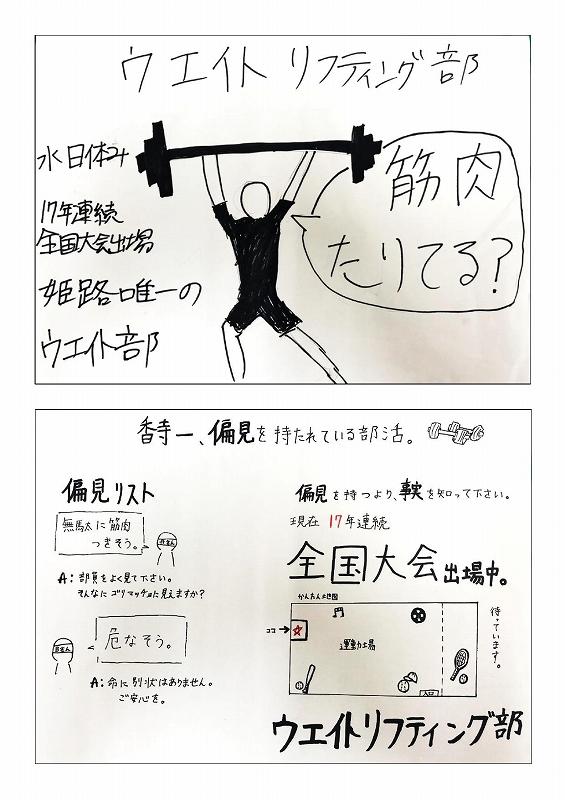 ウエイトリフティング部
水日休み
17年連続
全国大会出場
姫路唯一の
ウエイト部
筋肉
たりてる?
香寺一、偏見を持たれている部活。
偏見リスト
無駄に筋肉
つきそう。
A:部員をよく見て下さい。
そんなにゴリマッチョに見えますか?
危なそう。
A:命に別状はありません。
ご安心を。
偏見を持つより、事実を知って下さい。
現在 17年連続
全国大会出場中。
かんたん地図
ココ→
運動場
入口
待っています。
ウエイトリフティング部